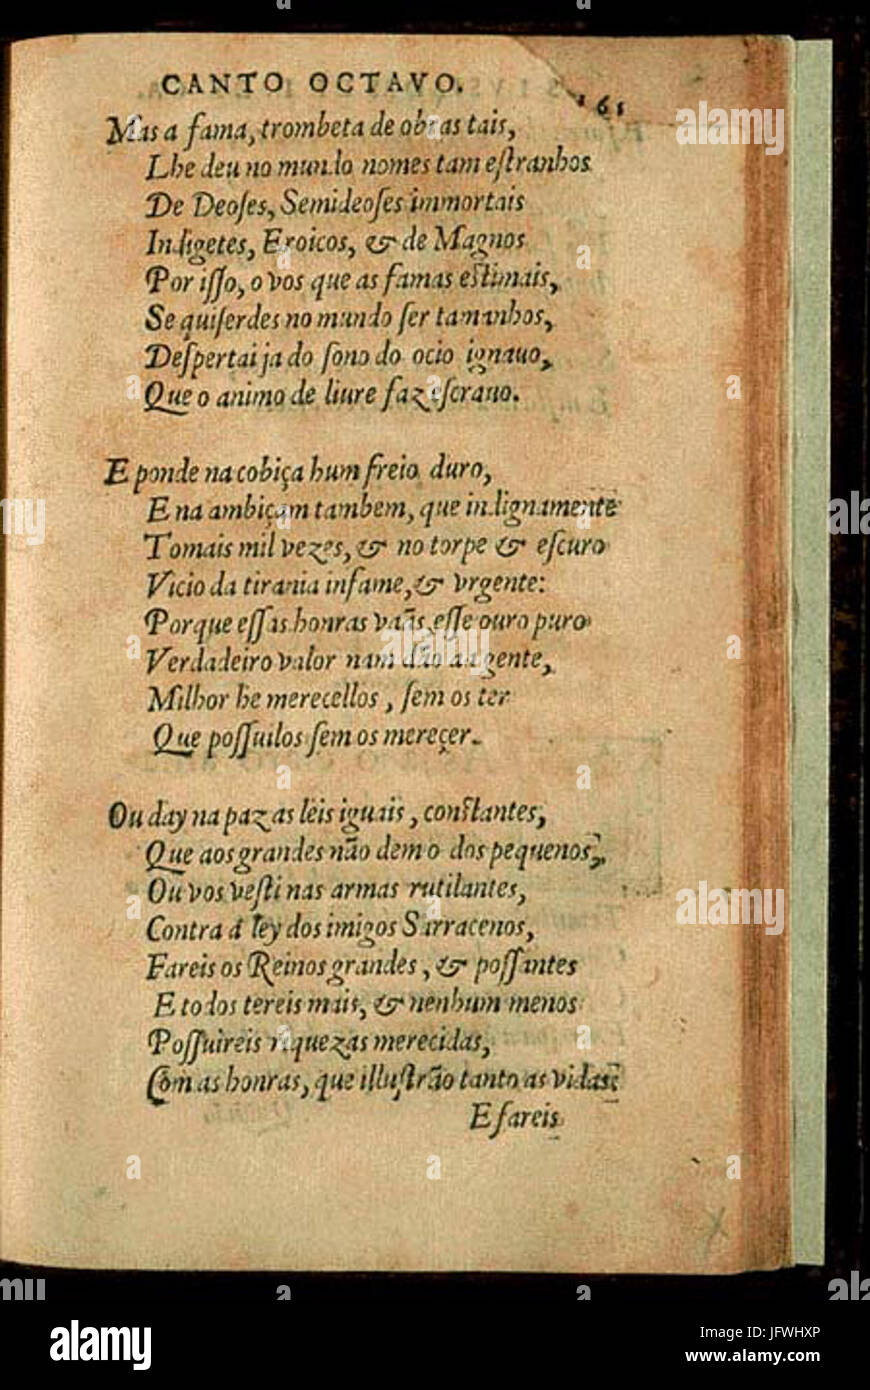 CANTO OCTAVO.
161
Mas a fama, trombeta de obras tais,
Lhe deu no mundo nomes tam eſtranhos
De Deoſes, Semideoſes immortais
Indigetes, Eroicos, & de Magnos
Por iſſo, o vos que as famas eſtimais,
Se quiſerdes no mundo ſer tamanhos,
Deſpertai ja do ſono do ocio ignauo,
Que o animo de liure faz eſcrauo.
E ponde na cobiça hum freio duro,
E na ambiçam tambem, que indignamente
Tomais mil vezes, & no torpe & eſcuro
Vicio da tirania infame, & vrgente:
Porque eſſas honras vaãs, eſſe ouro puro
Verdadeiro valor nam dão aa gente,
Milhor he merecellos, ſem os ter
Que poſſuilos ſem os mereçer.
Ou day na paz as leis iguais, conſtantes,
Que aos grandes não dem o dos pequenos,
Ou vos veſti nas armas rutilantes,
Contra á ley dos imigos Sarracenos,
Fareis os Reinos grandes, & poſſantes
E todos tereis mais, & nenhum menos
Poſſuireis riquezas merecidas,
Com as honras, que illuſtrão tanto as vidas:
E fareis
alamy
alamy
Image ID: JFWHXP
www.alamy.com